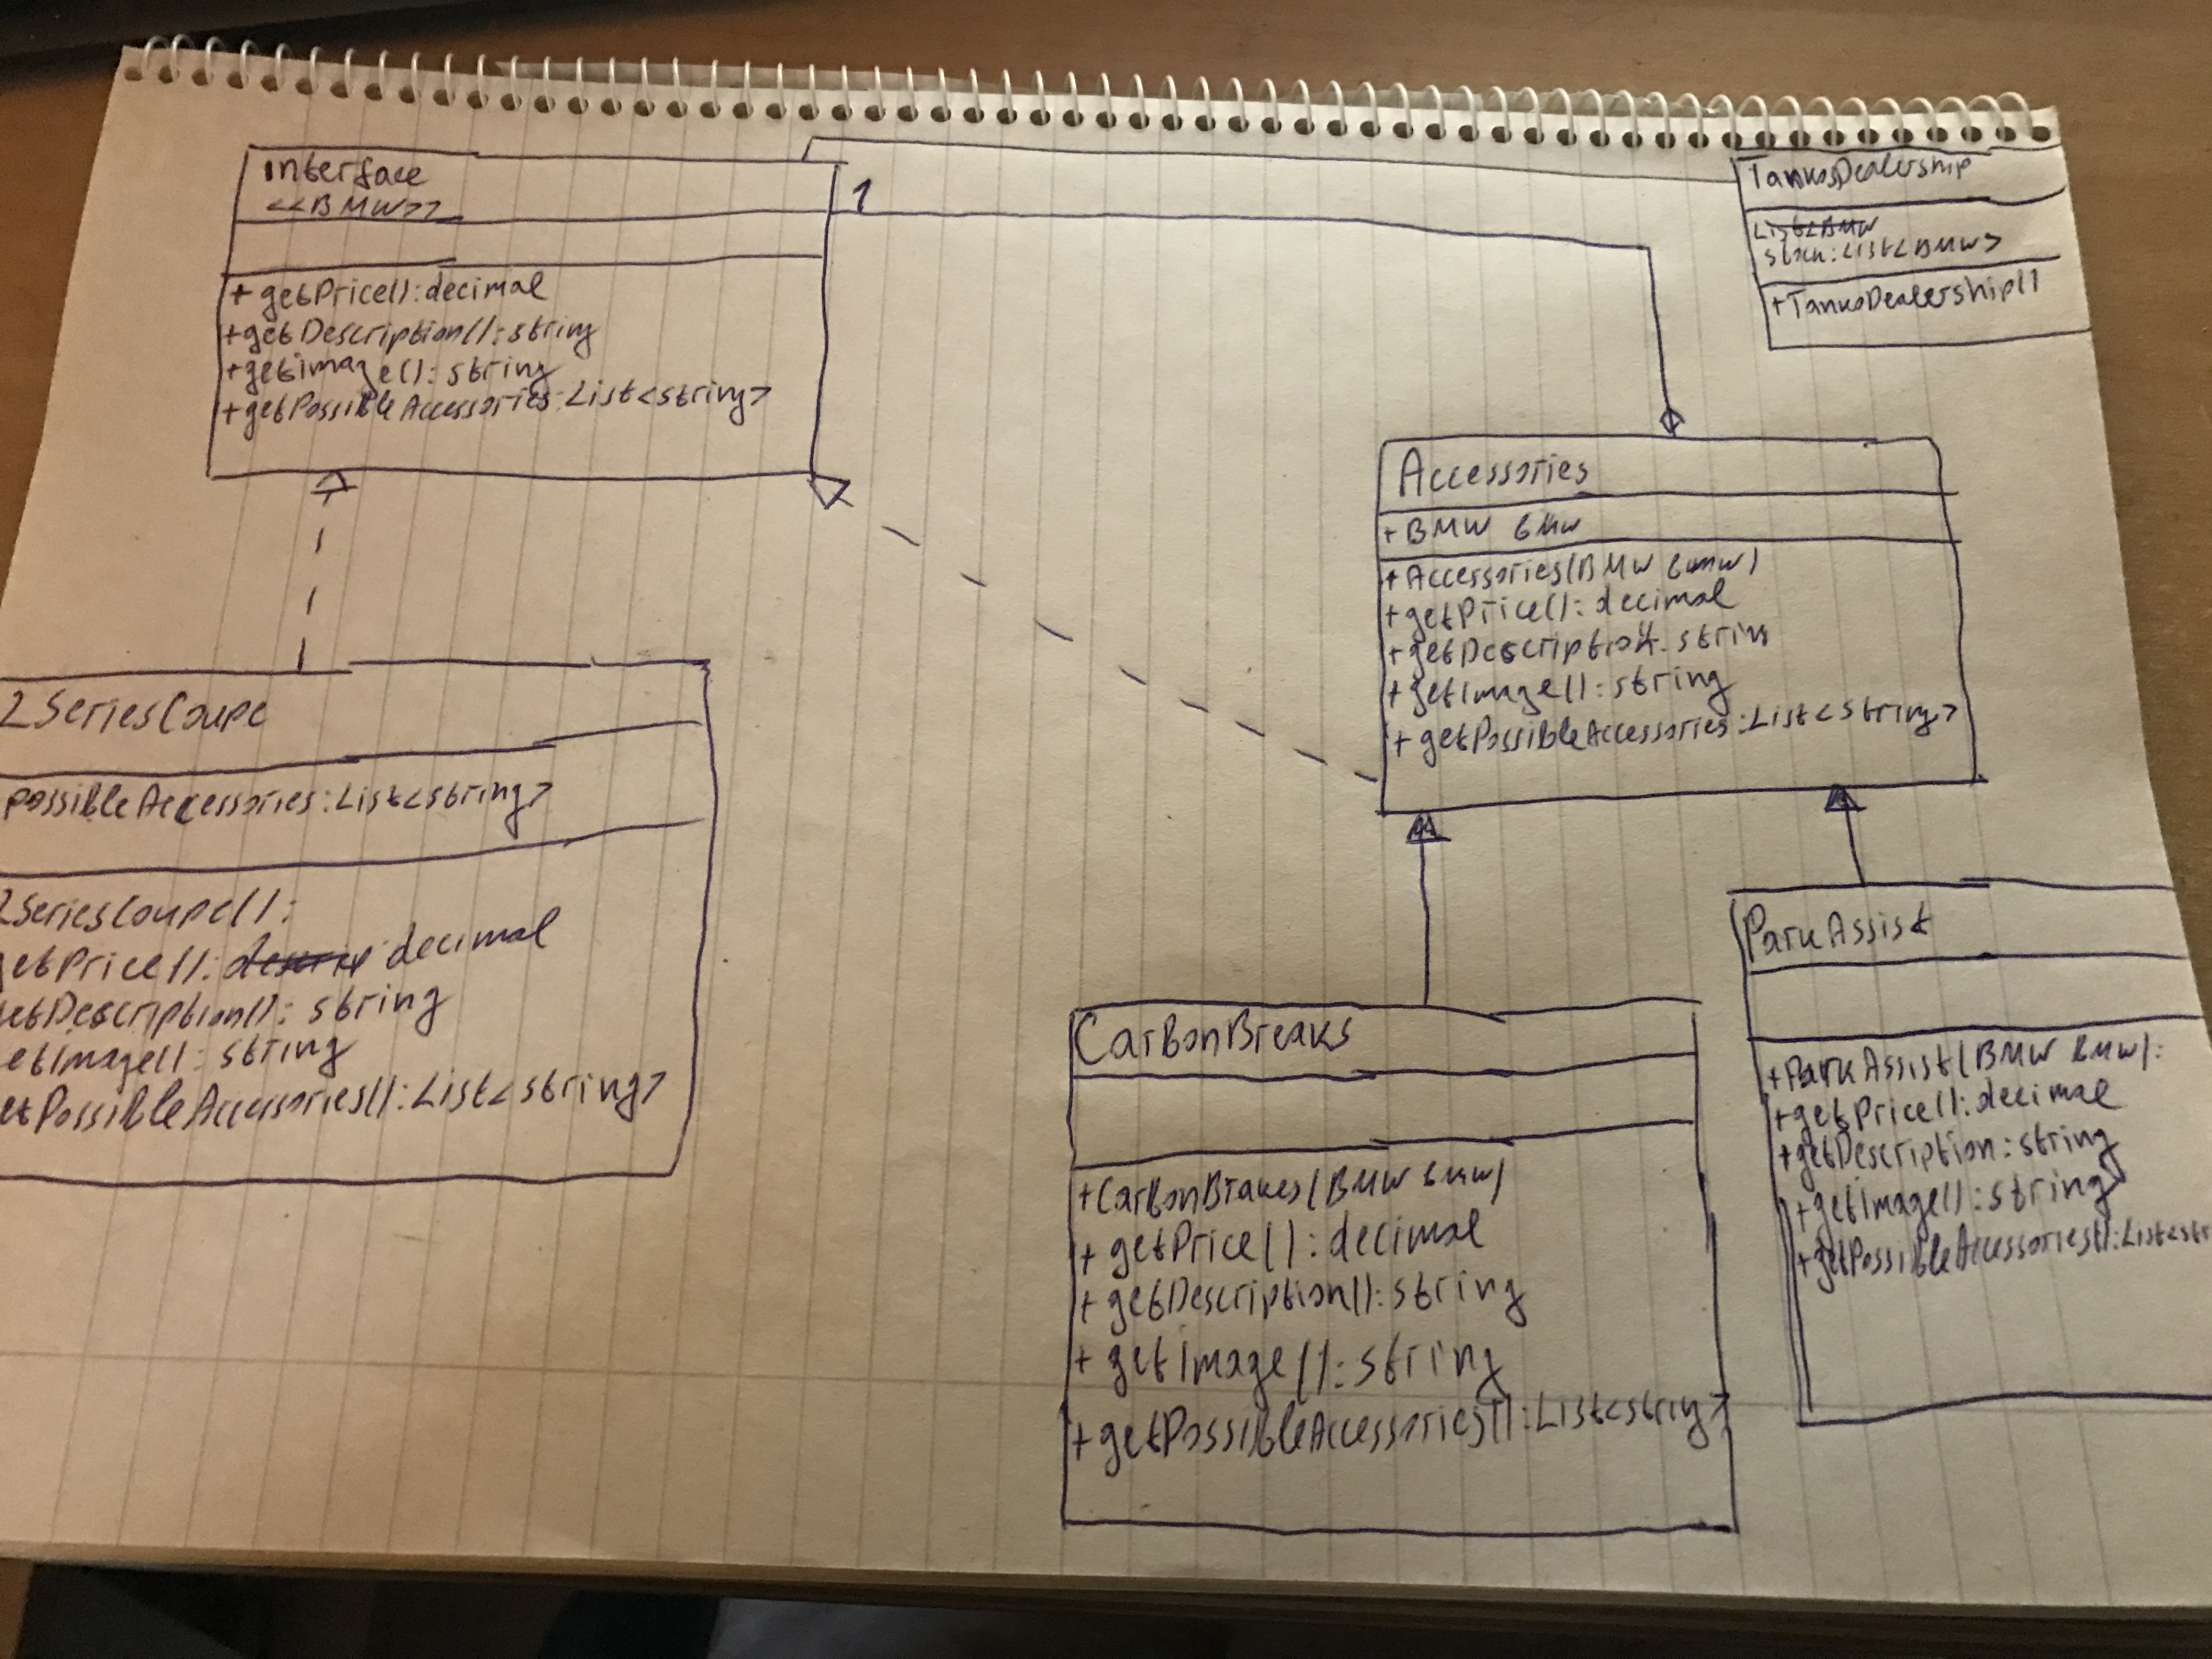 interface
<<BMW>>
+ getPrice():decimal
+getDescription(): string
+getimage(): string
+getPossibleAccessories:List<string>
1
TankosDealership
List<BMW
stock:List<BMW>
+TankosDealership()
Accessories
+BMW bmw
+Accessories(BMW bmw)
+getPrice(): decimal
+getDescription(): string
+getImage(): string
+getPossibleAccessories:List<string>
2SeriesCoupe
possibleAccessories:List<string>
2SeriesCoupe():
getPrice(): decimal
getDescription(): string
getImage(): string
getPossibleAccessories():List<string>
CarbonBreaks
+CarbonBrakes(BMW bmw)
+ getPrice(): decimal
+ getDescription(): string
+ getImage(): string
+getPossibleAccessories():List<string>
ParkAssist
+ParkAssist(BMW bmw):
+getPrice():decimal
+getDescription:string
+getImage():string
+getPossibleAccessories():List<str